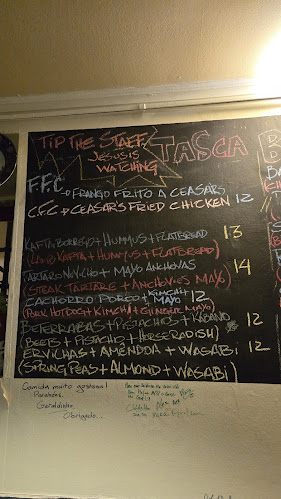 TIP THE STAFF
JESUS IS
WATCHING
TASCA
F.F.C → FRANGO FRITO A CEASARS
C.F.C → CEASAR'S FRIED CHICKEN 12
KAFTA BORREGO + HUMMUS + FLATBREAD 13
(LAMB KAFTA + HUMMUS + FLATBREAD)
TARTARO NOVILHO + MAYO ANCHOVAS 14
(STEAK TARTARE + ANCHOVIES MAYO)
CACHORRO PORCO + KIMCHI + MAYO 12
(PORK HOTDOG + KIMCHI + GINGER MAYO)
BETERRABAS + PISTACHIO + RÁBANO 12
(BEETS + PISTACHIO + HORSERADISH)
ERVILHAS + AMENDOA + WASABI 12
(SPRING PEAS + ALMOND + WASABI)
Comida muito gostosa!
Parabéns,
Geraldinho
Obrigado...